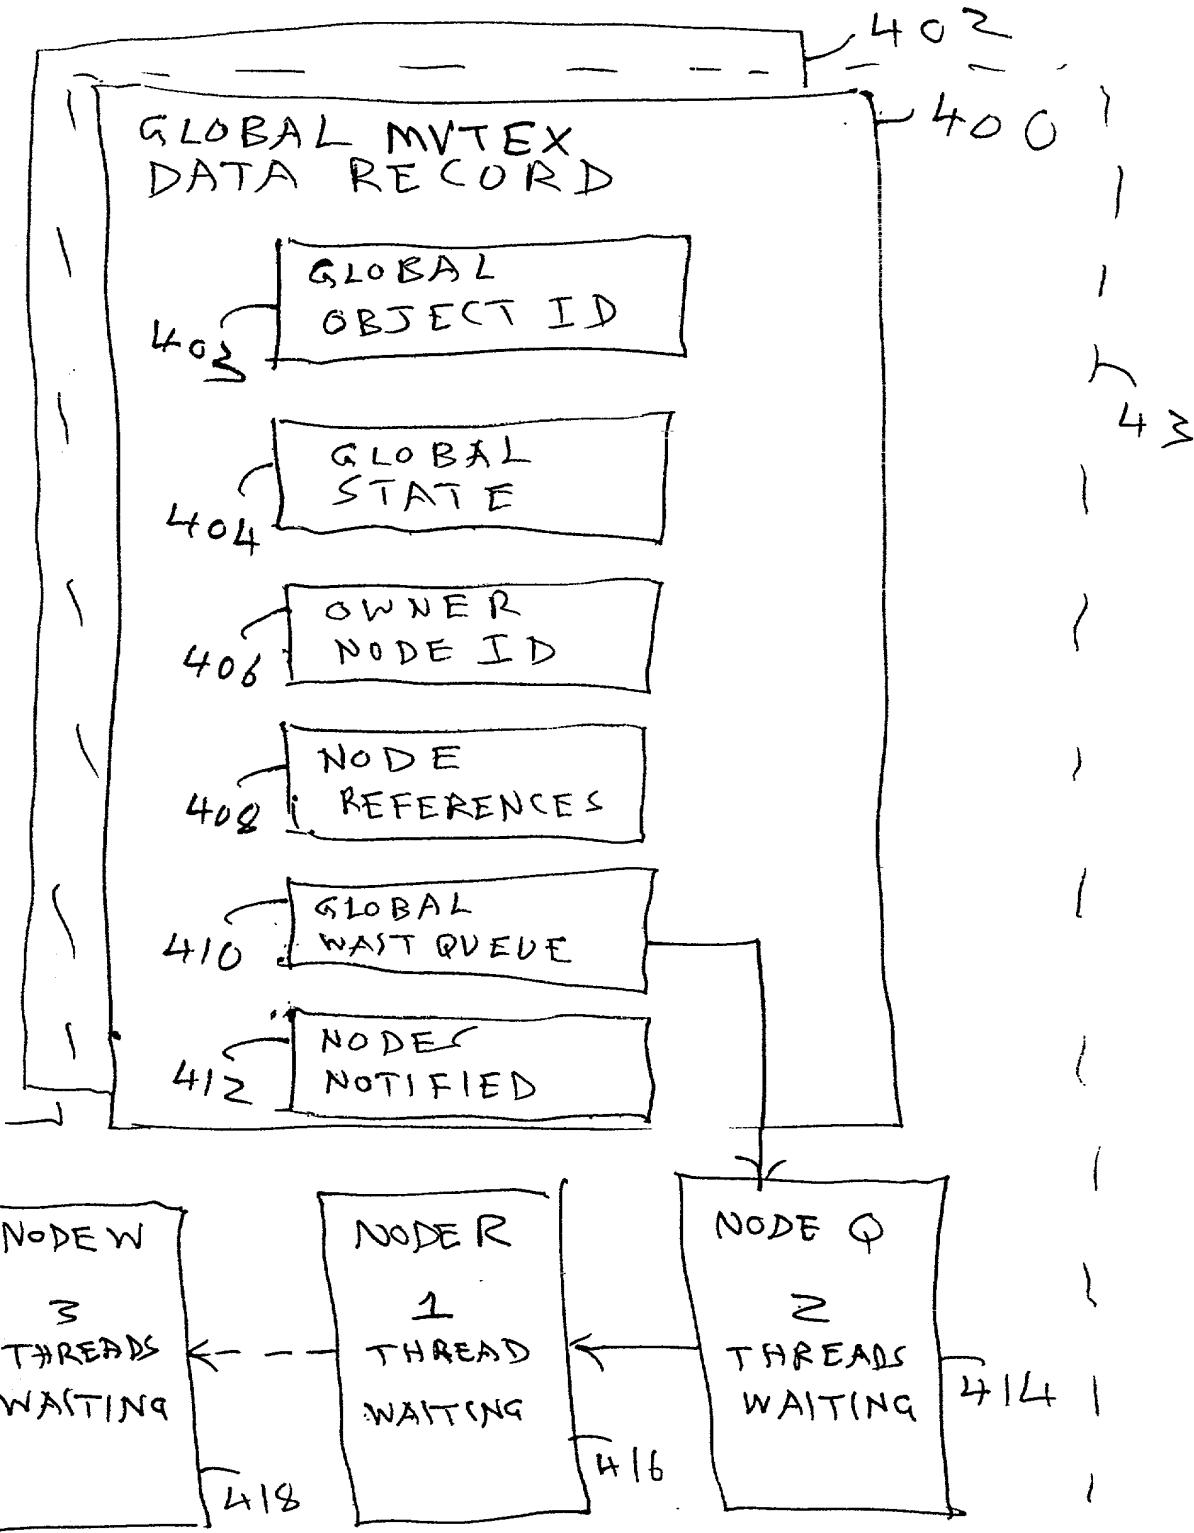 402
400
GLOBAL MUTEX
DATA RECORD
GLOBAL
OBJECT ID
403
43
GLOBAL
STATE
404
OWNER
NODE ID
406
NODE
REFERENCES
408
GLOBAL
WAIT QUEUE
410
NODES
NOTIFIED
412
NODE W
3
THREADS
WAITING
418
NODE R
1
THREAD
WAITING
416
NODE Q
2
THREADS
WAITING
414